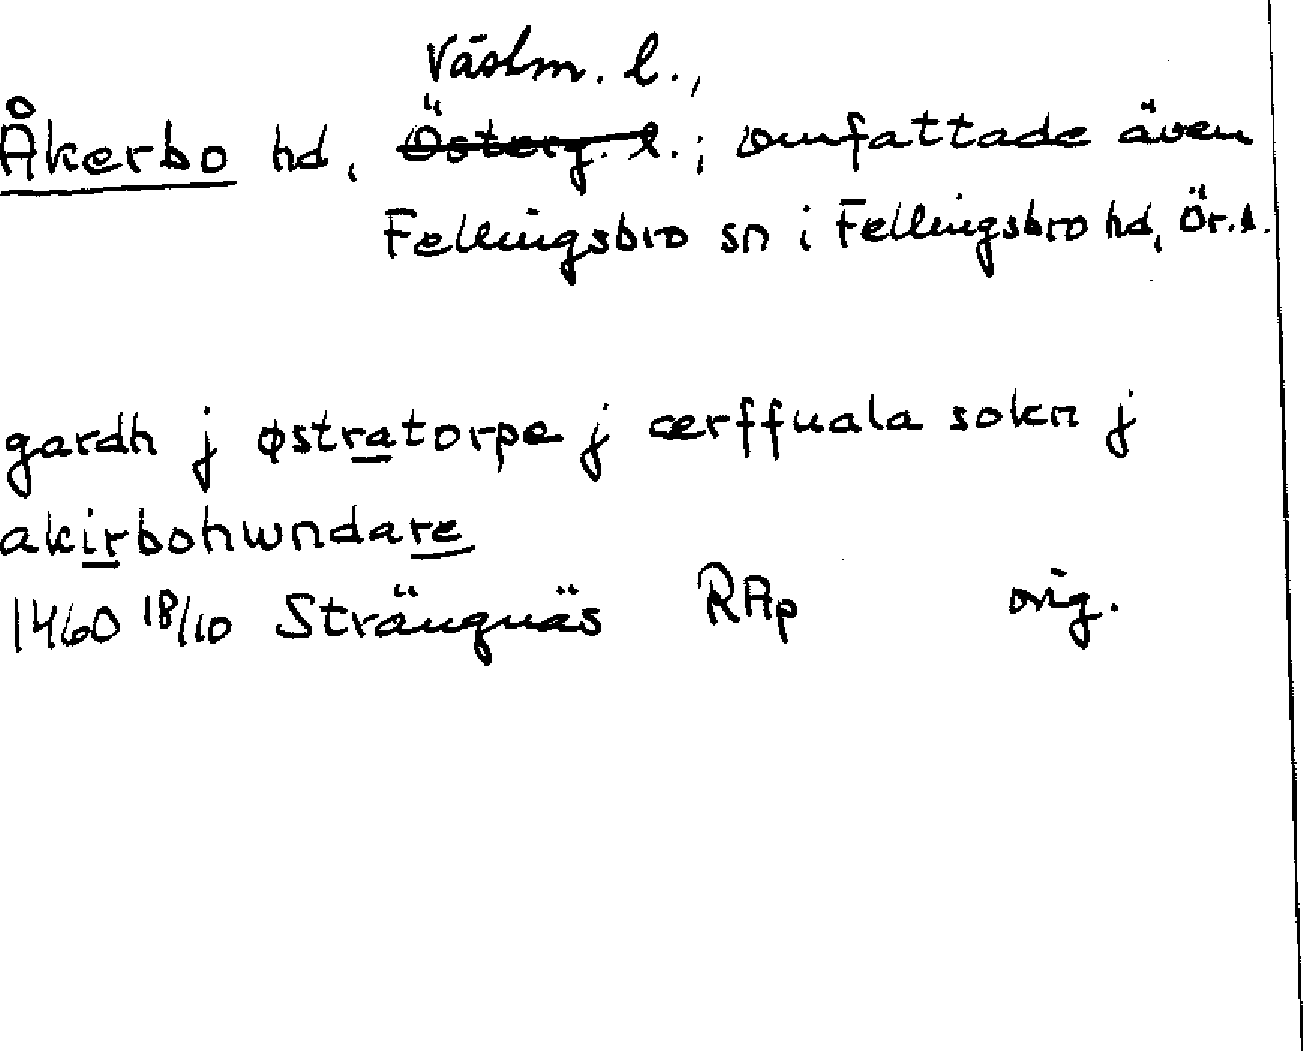 Västm. l.,
Åkerbo hd, Österg. l.; omfattade även
Fellingsbro sn i Fellingsbro hd, Ör.l.
gardh j østratorpe j ærffuala sokn j
akirbohwndare
1460 18/10 Strängnäs RAp orig.